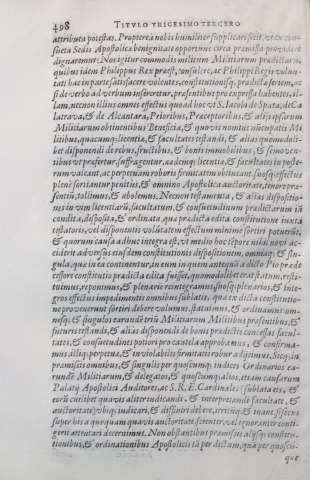 498 TITVLO TRICESIMO TERCERO
attributa potestas. Propterea nobis humiliter supplicari fecit, vt ex con-
sueta Sedis Apostolicæ benignitate opportune circa præmissa prouidere
dignaremur: Nos igitur commodis militum Militiarum prædictarum,
quibus idem Philippus Rex præest, consulere, ac Philippi Regis volun-
tati hac in parte satisfacere volentes, constitutionẽ prædictam, ac
si de verbo ad verbum insereretur, præsentibus pro expressa habentes, il-
lam, necnon illius omnes effectus quo ad hoc vt S. Iacobi de Spata, de Ca
latraua, & de Alcantara, Prioribus, Præceptoribus, & alijs ipsarum
Militiarum obtinentibus Beneficia, & quouis nomine nuncupatis Mi
litibus, quæcumq; licentia, & facultates testandi, & alias quomodoli-
bet disponendi de rebus, fructibus, & bonis immobilibus, & semouen-
tibus vt præfertur, suffragentur, eædemq; licentiæ, & facultates in poste-
rum valeant, ac perpetuam roboris firmitatem obtineant, suosq; effectus
plenè sortiantur penitùs, & omnino Apostolica auctoritate, tenore præ-
sentiũ, tollimus, & abolemus. Necnon testamenta, & alias dispositio-
nes in vim licentiarũ, facultatum, & consuetudinum prædictarum iã
condita, disposita, & ordinata, quæ prædicta edita constitutione iuxta
testatoris, vel disponentis volũtatem effectum minimè sortiri poterũt,
& quorum causa adhuc integra est, vt medio hoc tẽpore nihil noui ac-
ciderit aduersus eiusdem constitutionis dispositionem, omniaq; & sin-
gula, quæ in ea continentur, in eum in quem antequã a dicto Pio præde
cessore constitutio prædicta edita fuisset, quomodolibet erat statum, resti-
tuimus, reponimus, & plenariè reintegramus, suosq; plenarios, & inte-
gros effectus impedimentis omnibus sublatis, quæ ex dicta constitutio-
ne prouenerunt sortiri debere volumus, statuimus, & ordinamus om-
nesq; & singulos earundẽ triũ Militiarum Militibus præsentibus, &
futuris testandi, & alias disponendi de bonis prædictis concessas facul-
tates, & consuetudines potiori pro cautela approbamus, & confirma-
mus, illisq; perpetuæ, & inuiolabilis firmitatis robur adijcimus. Sicq; in
præmissis omnibus, & singulis per quoscumq; iudices Ordinarios ea-
rundẽ Militiarum, & delegatos, & quoscumq; alios, etiam causarum
Palatij Apostolici Auditores, ac S. R. E. Cardinales (sublata eis, &
eorũ cuilibet quauis aliter iudicandi, & interpretandi facultate, &
auctoritate) vbiq; iudicari, & diffiniri debere, irritũq; & inane si secus
super his a quoquam quauis auctoritate scienter, vel ignoranter conti-
gerit attentari decernimus. Non obstantibus præmissis alijsq; constitu-
tionibus, & ordinationibus Apostolicis tã per dictum, quã per quoscũ-
que